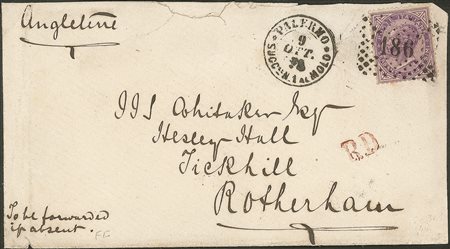 Angleterre
PALERMO
9
OTT.
SUCCURS. 1 AL MOLO
186
J J S Whitaker Esq
Hesley Hall
P.D.
Tickhill
Rotherham
To be forwarded
if absent.